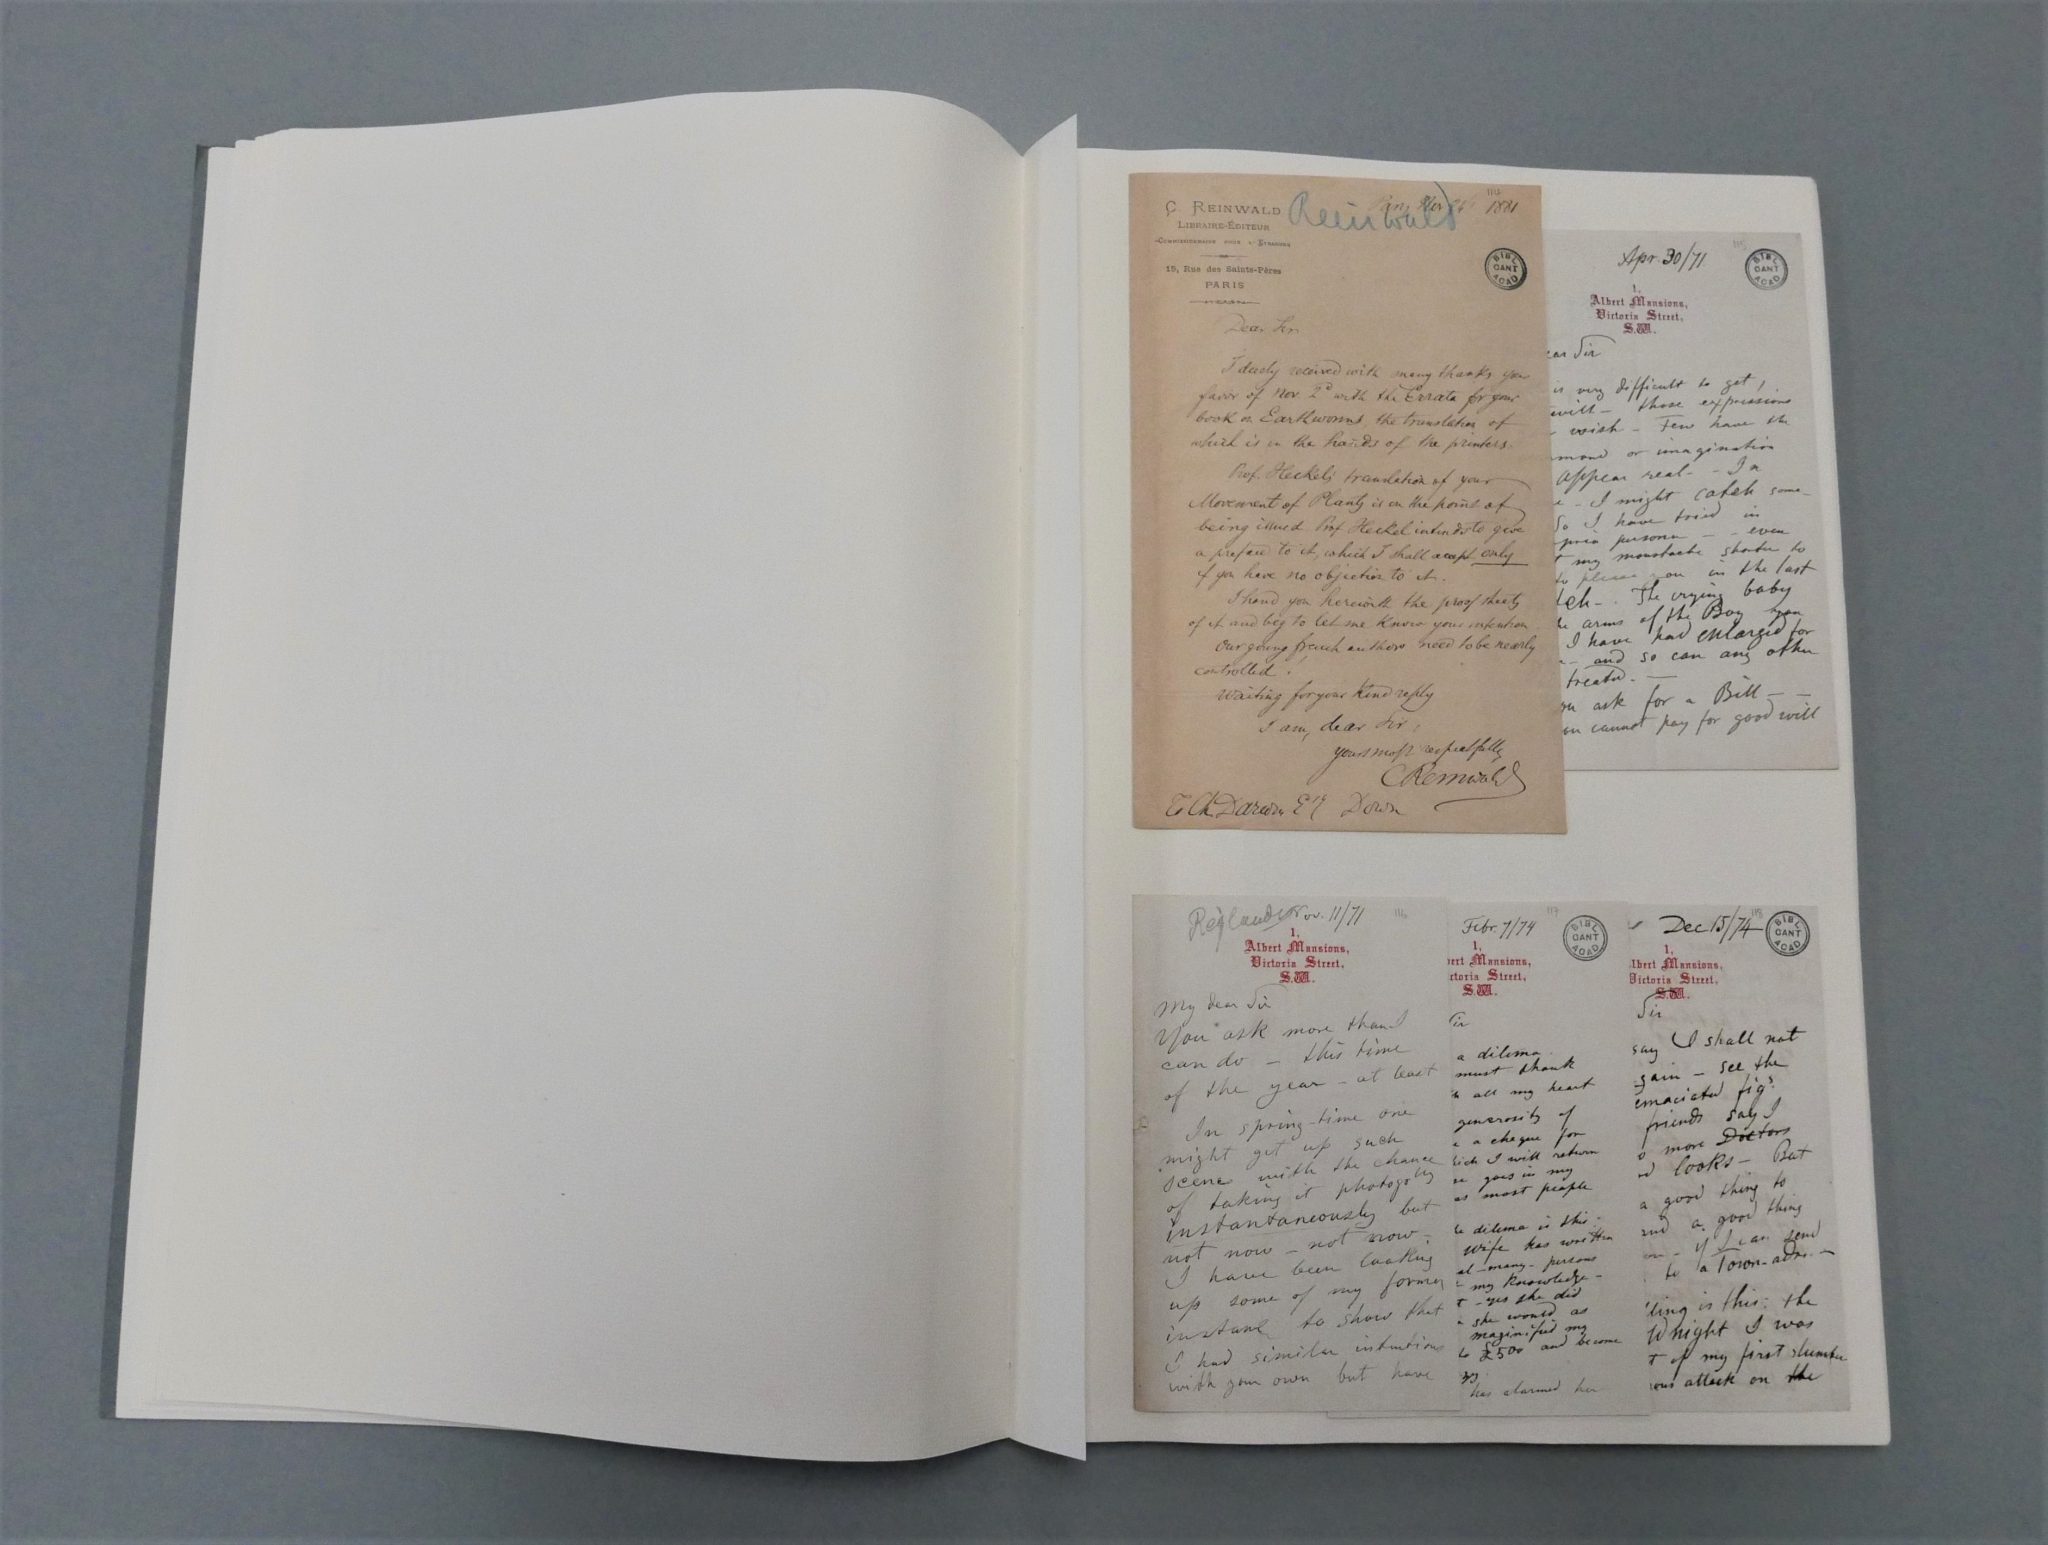 C. REINWALD
LIBRAIRE-ÉDITEUR
COMMISSIONNAIRE POUR L'ÉTRANGER
15, Rue des Saints-Pères
PARIS
Reinwald
114
1881
BIBL
CANT
ACAD
Dear Sir
I duly received with many thanks your
favor of Nov 2d with the Errata for your
book on Earthworms, the translation of
which is in the hands of the printers.
Prof. Heckel's translation of your
Movement of Plants is on the point of
being issued Prof Heckel intends to give
a preface to it, which I shall accept only
if you have no objection to it.
I hand you herewith the proof sheets
of it and beg to let me know your intention
Our young french authors need to be nearly
controlled!
Waiting for your kind reply
I am, dear Sir,
yours most respectfully
C Reinwald
To Ch. Darwin Esq Down
115
Apr. 30/71
BIBL
CANT
ACAD
1,
Albert Mansions,
Victoria Street,
S.W.
ear Sir
is very difficult to get,
will - those expressions
wish - Few have the
mand or imagination
appear real - In
e - I might catch some-
So I have tried in
pria persona - - even
t my moustache shorter to
to please you in the last
tch - The crying baby
he arms of the Boy
I have had enlarged for
- and so can any other
treated. -
ou ask for a Bill - -
ou cannot pay for good will
Rejlander
Nov. 11/71
116
1,
Albert Mansions,
Victoria Street,
S.W.
My dear Sir
You ask more than I
can do - this time
of the year - at least
In spring-time one
might get up such
scene with the chance
of taking it photogrly
instantaneously but
not now - not now -
I have been looking
up some of my former
instant to show that
I had similar intentions
with your own but have
Febr. 7/74
117
BIBL
CANT
ACAD
1,
bert Mansions,
ctoria Street,
S.W.
Sir
a dilema
must thank
h all my heart
generosity of
e a cheque for
hich I will return
se goes in my
as most people
he dilema is this -
wife has written
al - many - persons
t my knowledge -
t - yes she did
she would as
maginified my
to £500 and become
has alarmed her
Dec 15/74
118
BIBL
CANT
ACAD
1,
lbert Mansions,
Victoria Street,
S.W.
Sir
say I shall not
gain - see the
emaciated figs
friends say I
more Doctors
d looks - But
a good thing to
and a good thing
on - if I can send
to a Town-adrs. -
ling is this: the
night I was
t of my first slumber
ous attack on the